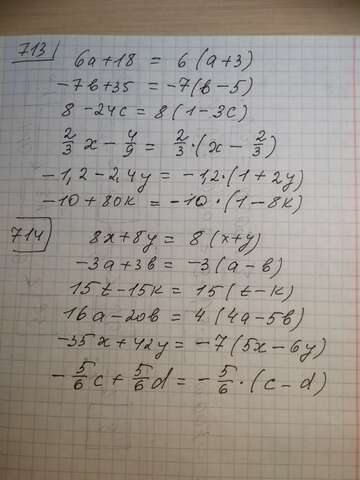 713
6a+18 = 6(a+3)
-7b+35 = -7(b-5)
8-24c = 8(1-3c)
2/3 x - 4/9 = 2/3·(x - 2/3)
-1,2-2,4y = -1,2·(1+2y)
-10+80k = -10·(1-8k)
714
8x+8y = 8(x+y)
-3a+3b = -3(a-b)
15t-15k = 15(t-k)
16a-20b = 4(4a-5b)
-35x+42y = -7(5x-6y)
-5/6 c + 5/6 d = -5/6·(c-d)